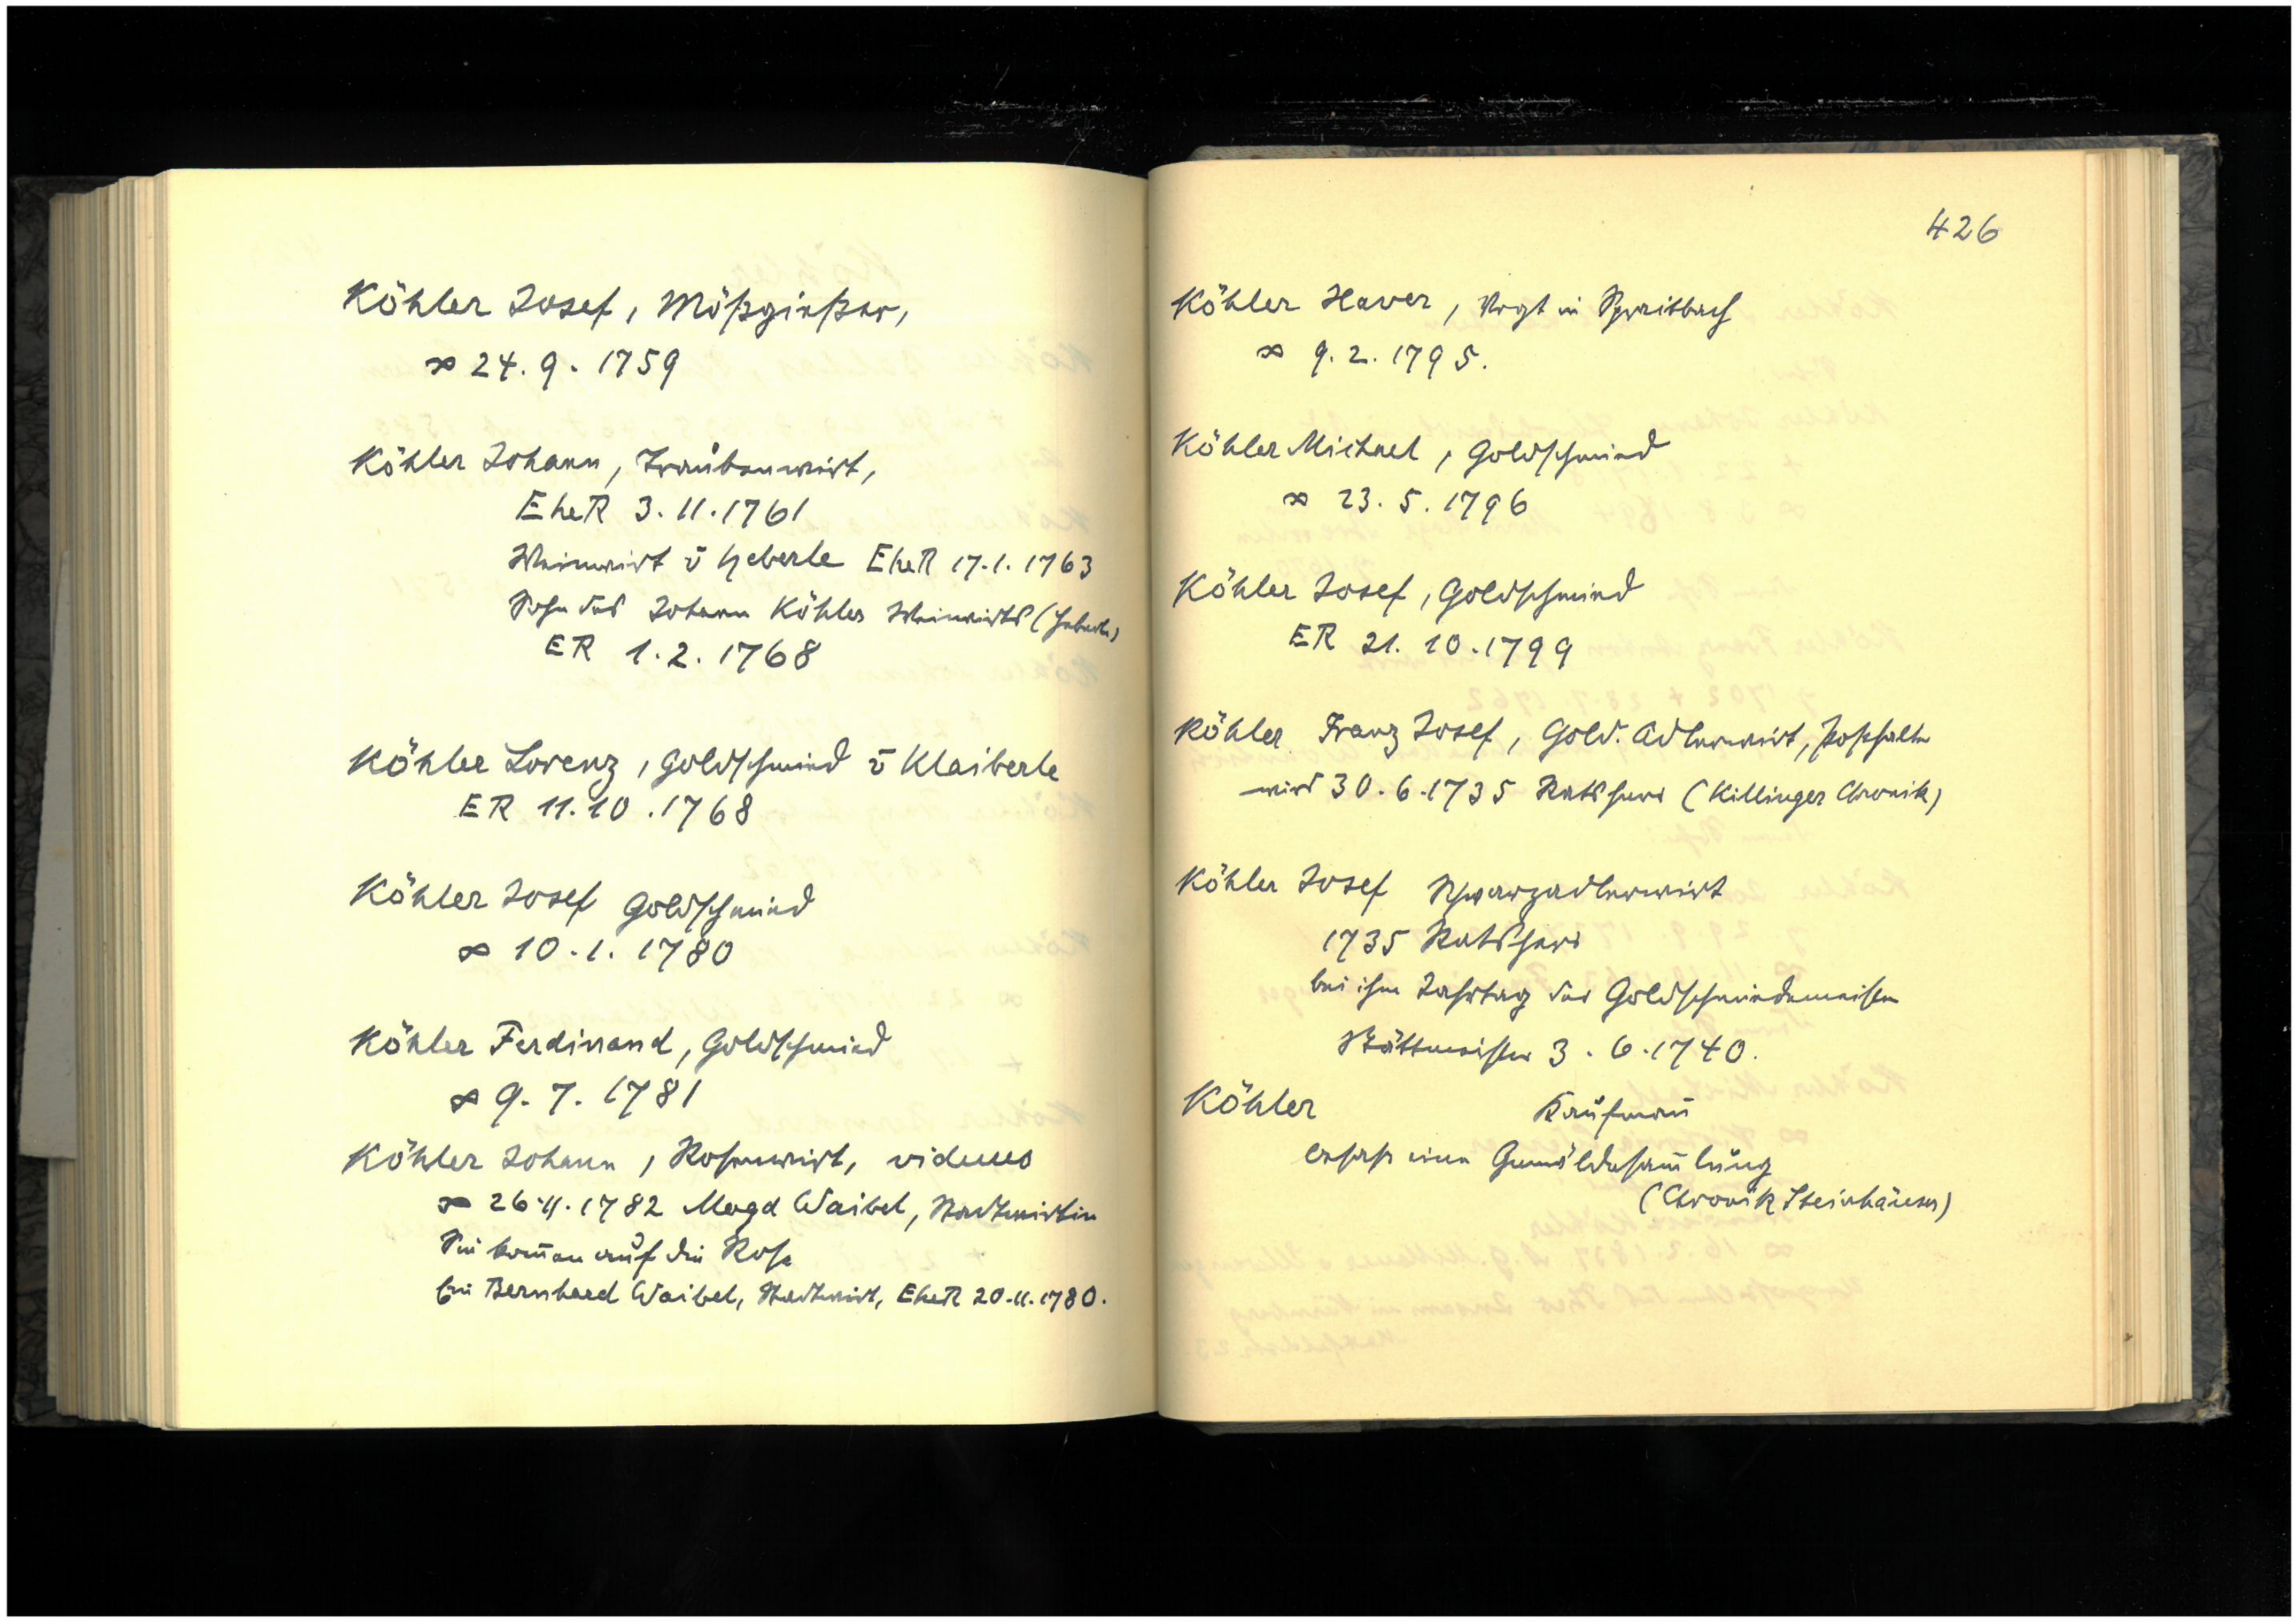 Köhler Josef, Mößgießer,
∞ 24. 9. 1759
Köhler Johann, Traubenwirt,
EheR 3. 11. 1761
Weinwirt v Heberle EheR 17. 1. 1763
Sohn des Johann Köhler Weinwirts (Heberle)
ER 1. 2. 1768
Köhler Lorenz, Goldschmied v Klaiberle
ER 11. 10. 1768
Köhler Josef Goldschmied
∞ 10. 1. 1780
Köhler Ferdinand, Goldschmied
∞ 9. 7. 1781
Köhler Johann, Rosenwirt, viduus
∞ 26. 11. 1782 Magd Waibel, Stadtwirtin
Sie kom̄en auf die Rose
Bernhard Waibel, Stadtwirt, EheR 20. 11. 1780.
426
Köhler Xaver, Vogt in Spraitbach
∞ 9. 2. 1795.
Köhler Michael, Goldschmied
∞ 23. 5. 1796
Köhler Josef, Goldschmied
ER 21. 10. 1799
Köhler Franz Josef, Gold. Adlerwirt, Posthalter
wird 30. 6. 1735 Ratsherr (Killinger Chronik)
Köhler Josef Schwarzadlerwirt
1735 Ratsherr
bei ihm Jahrtag der Goldschmiedemeister
Stättmeister 3. 6. 1740.
Köhler Kaufman̄
besaß eine Gemäldesam̄lung
(Chronik Steinhäuser)